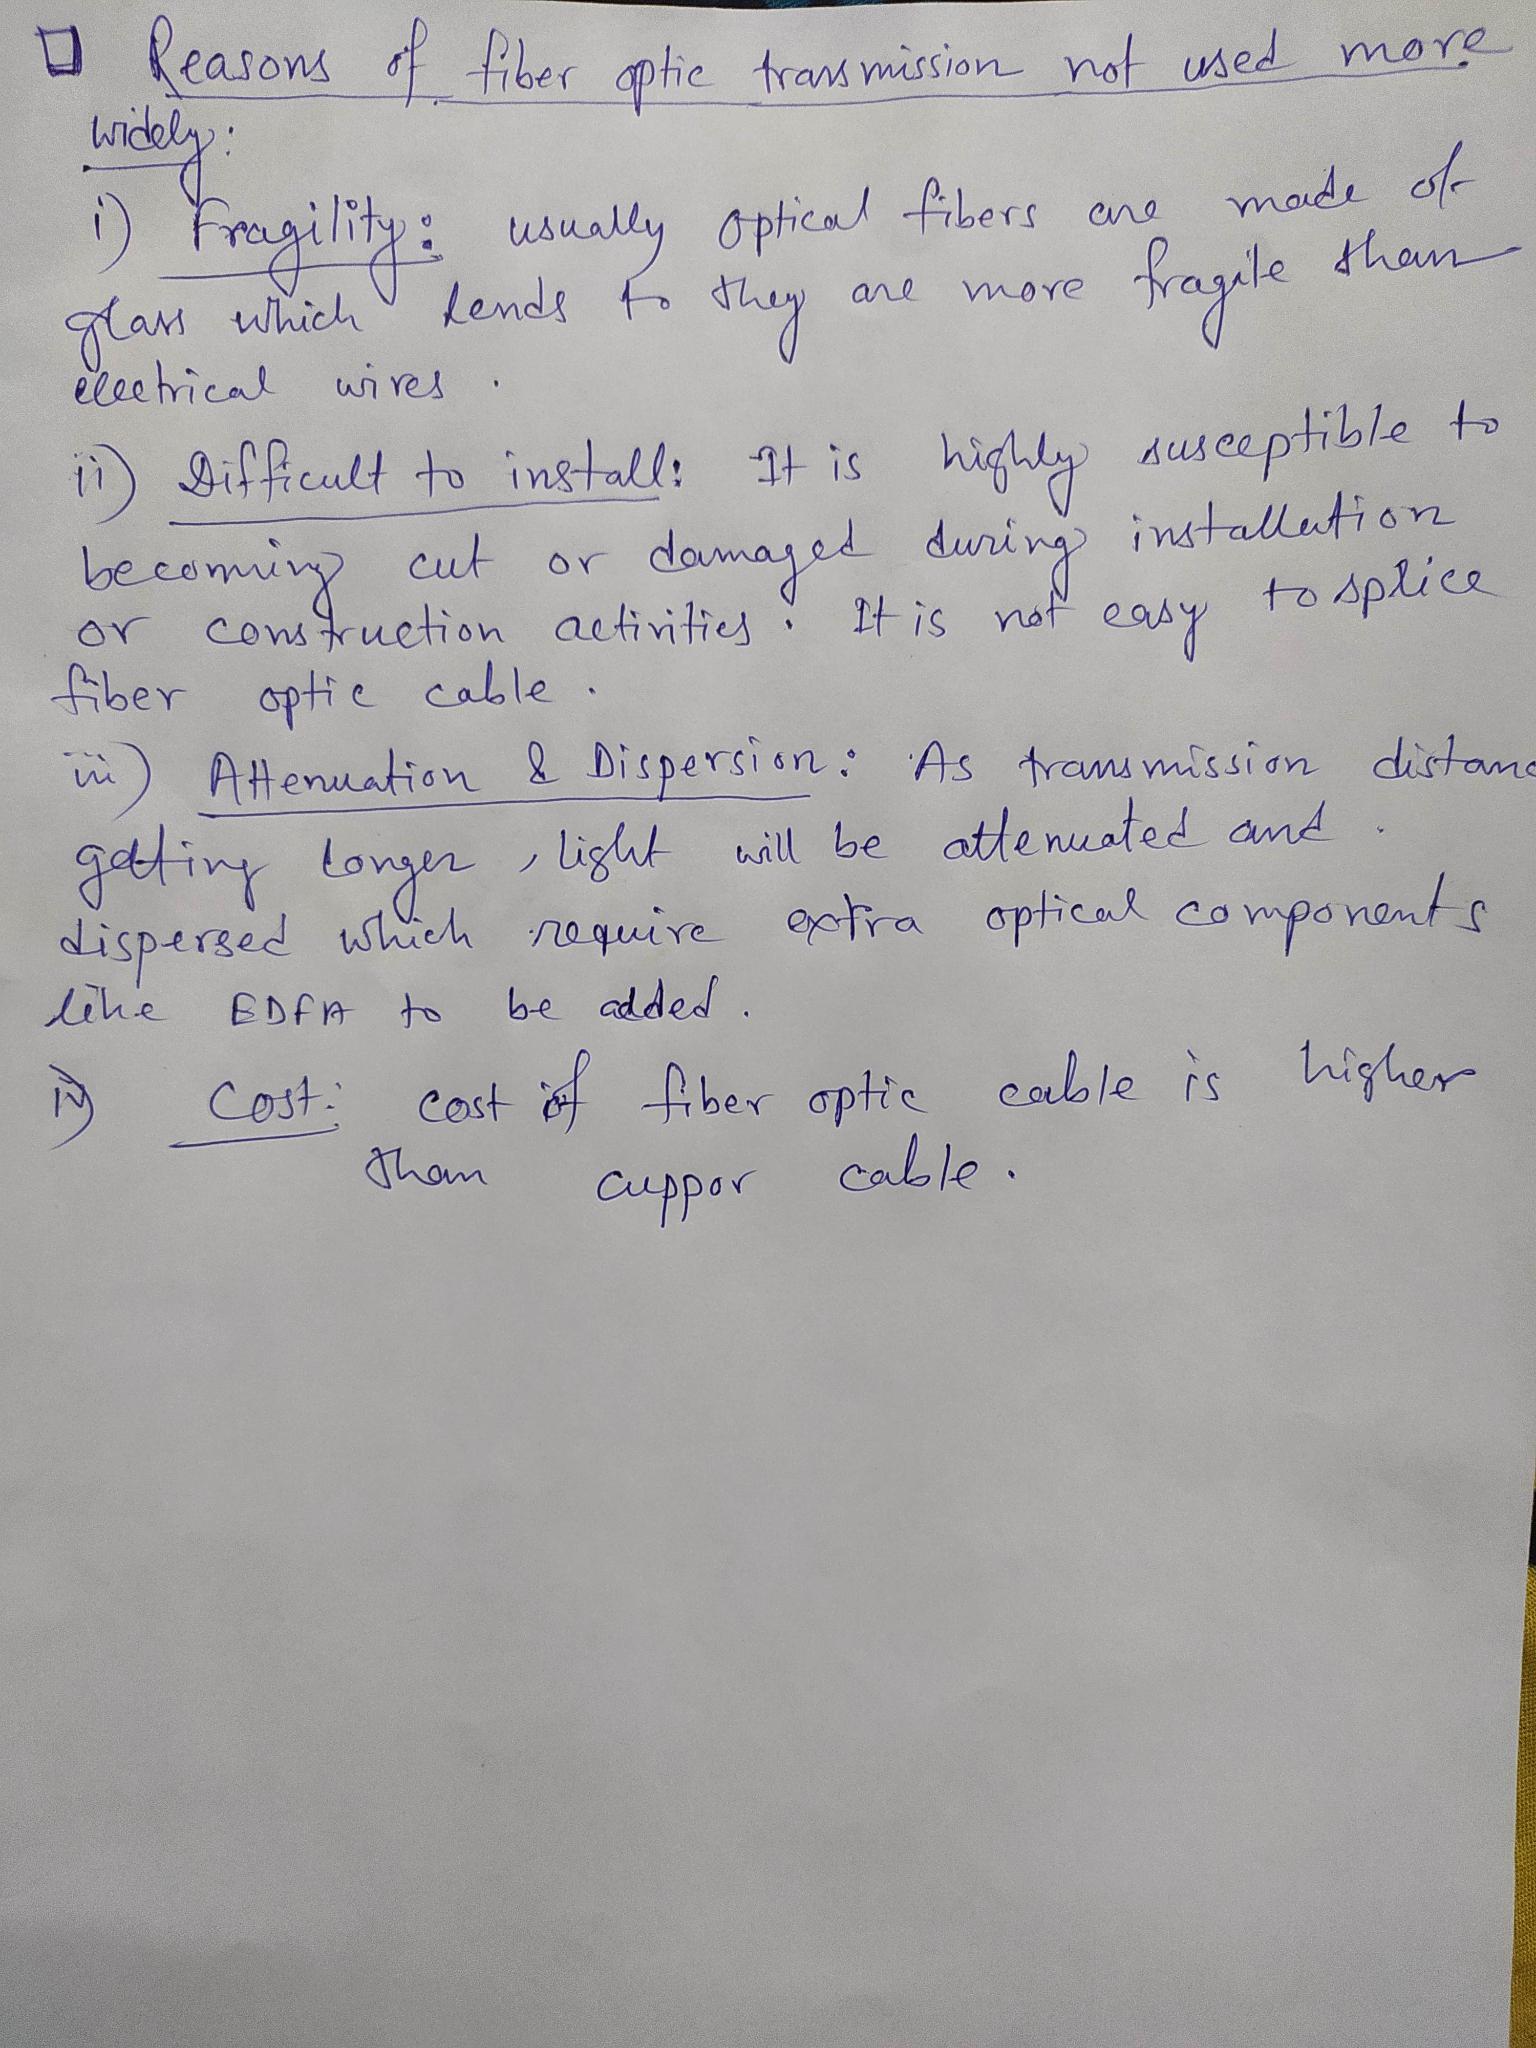 Reasons of fiber optic transmission not used more
widely:
i) Fragility: usually optical fibers are made of
glass which tends to they are more fragile than
electrical wires.
ii) Difficult to install: It is highly susceptible to
becoming cut or damaged during installation
or construction activities. It is not easy to splice
fiber optic cable.
iii) Attenuation & Dispersion: As transmission distanc
getting longer, light will be attenuated and.
dispersed which require extra optical components
like EDFA to be added.
iv) Cost: cost of fiber optic cable is higher
than cuppor cable.